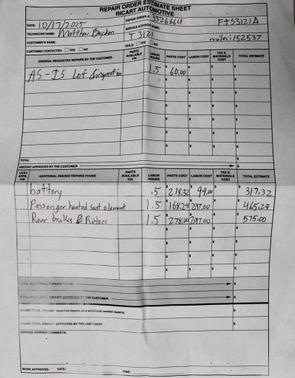 REPAIR ORDER ESTIMATE SHEET
RICART AUTOMOTIVE
DATE: 10/17/2025
FTS3121A
TECHNICIAN NAME: Matthew
T3121
miles: 152537
CUSTOMER'S NAME:
CUSTOMER CONTACTED YES NO
ORIGINAL REQUESTED REPAIRS BY THE CUSTOMER
PARTS AVAILABLE Y/N LABOR HOURS PARTS COST LABOR COST TAX & MATERIALS COST TOTAL ESTIMATE
AS-IS Lot 1.5 $ 60.00
TOTAL
AMOUNT APPROVED BY THE CUSTOMER
CUST. APPR. Y/N ADDITIONAL NEEDED REPAIRS FOUND PARTS AVAILABLE Y/N LABOR HOURS PARTS COST LABOR COST TAX & MATERIALS COST TOTAL ESTIMATE
battery .5 $ 218.32 $ 99.00 $ 317.32
Passenger heated seat element 1.5 $ 168.29 $ 297.00 $ 465.29
Rear brakes & Rotors 1.5 $ 278.00 $ 297.00 $ 575.00
WORK APPROVED DATE: TIME: